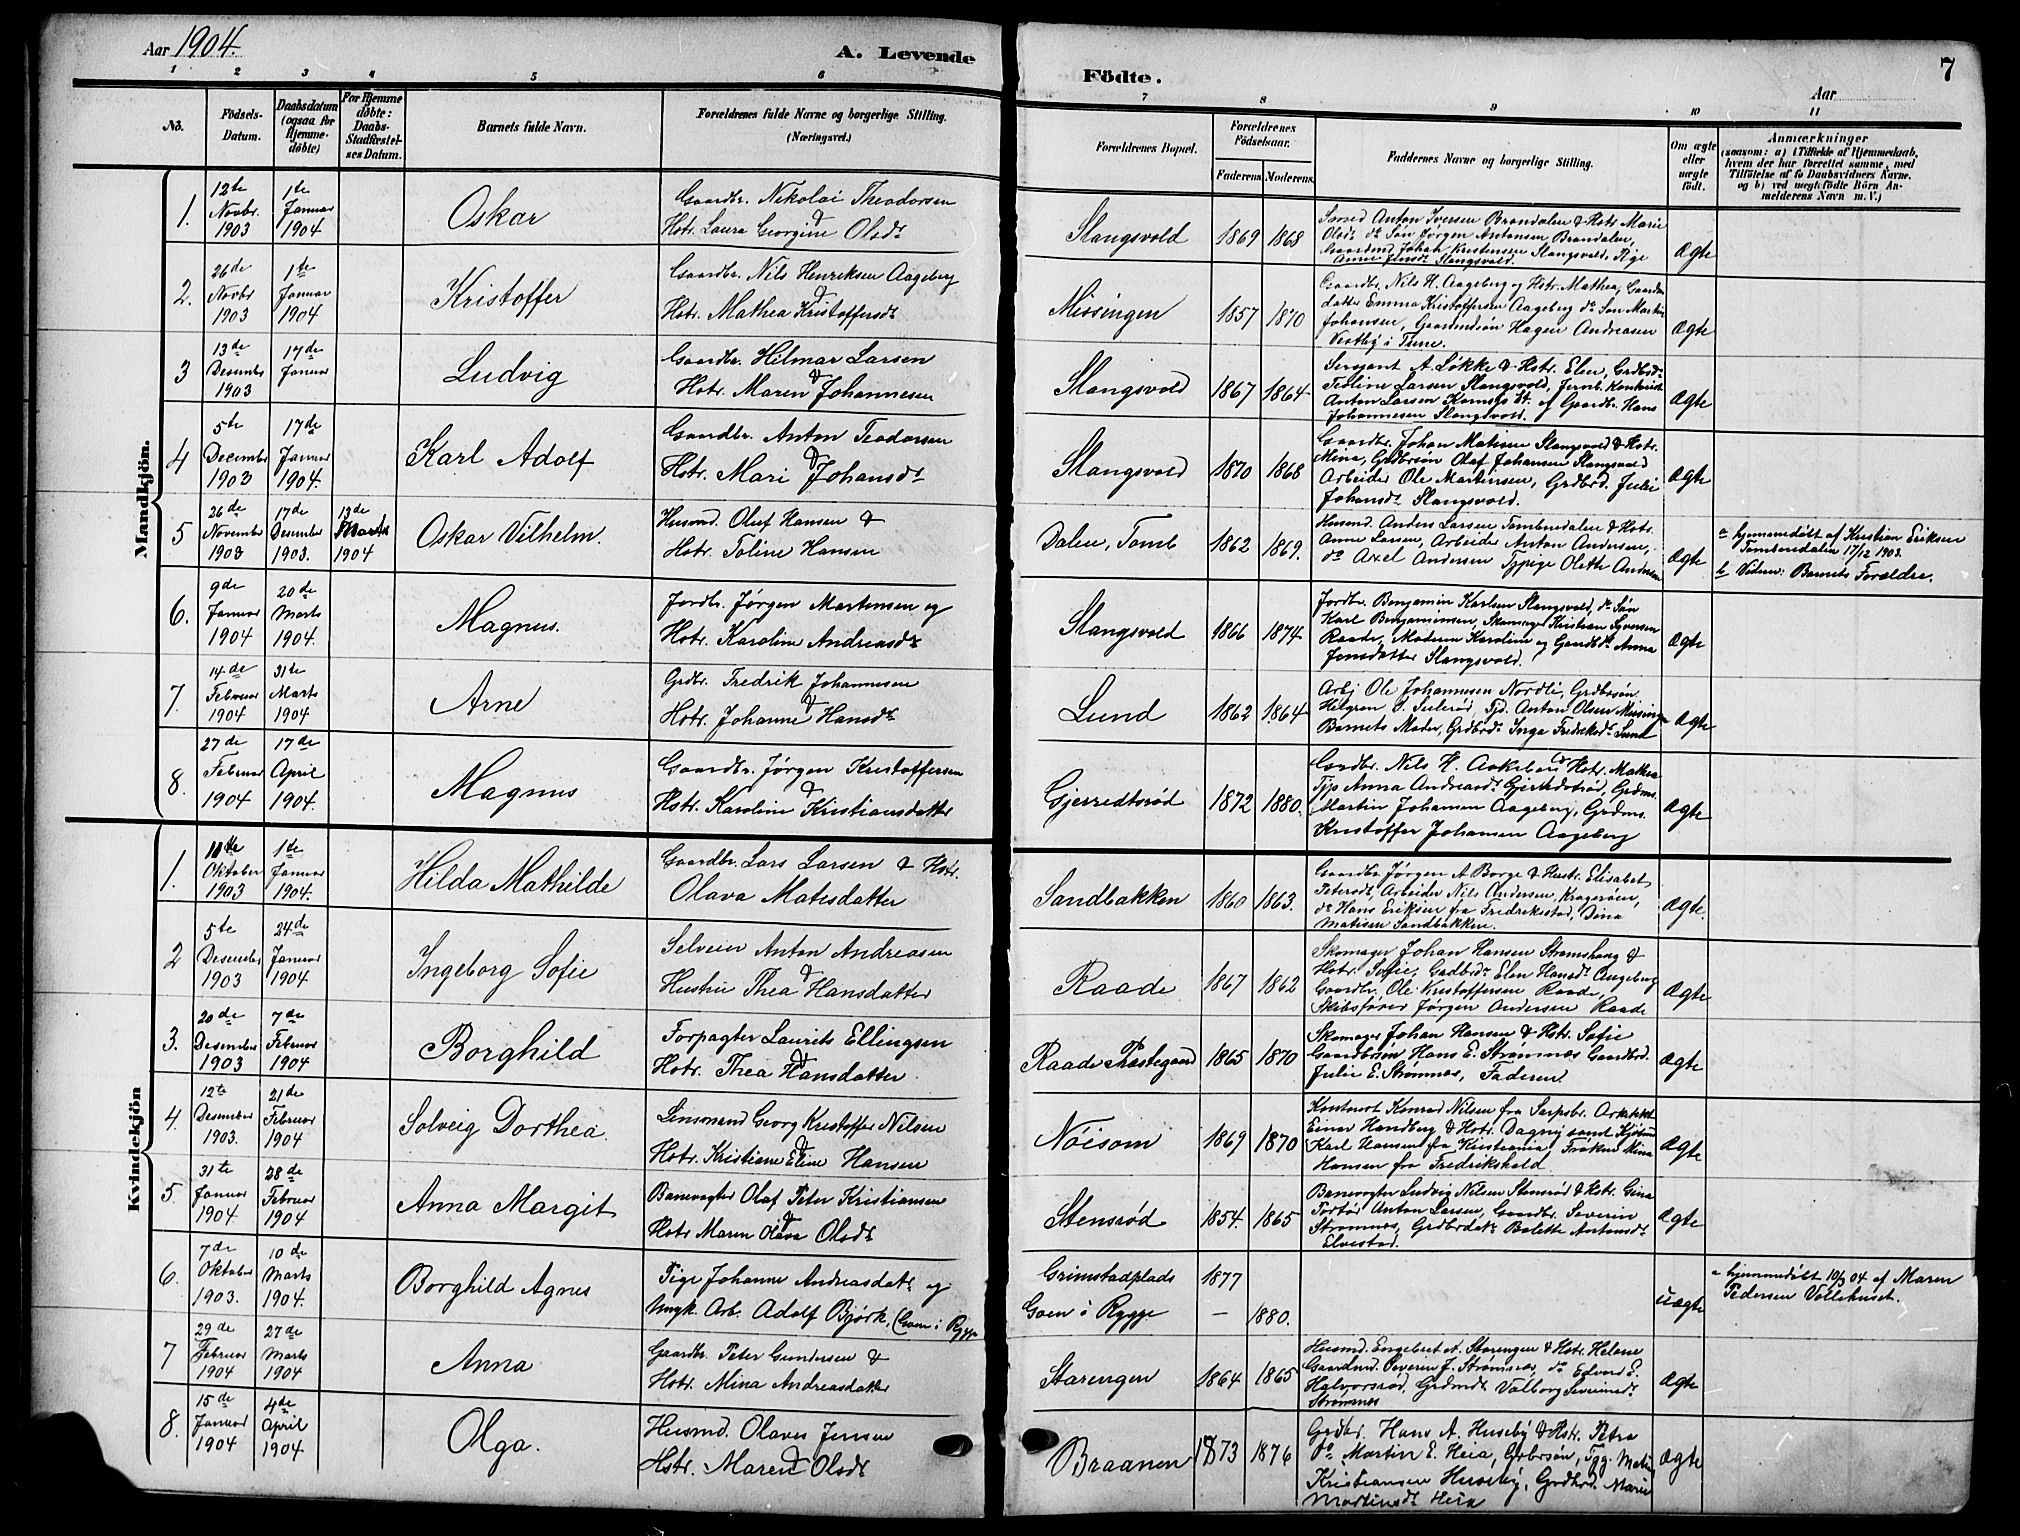 Aar 1904.
A. Levende
Födte.
Aar
7
1 2 3 4 5 6 7 8 9 10 11
No.
Födsels-
Datum.
Daabsdatum
(ogsaa for
Hjemme-
döbte)
For Hjemme
döbte:
Daabs-
Stadfæstel-
ses Datum.
Barnets fulde Navn.
Forældrenes fulde Navne og borgerlige Stilling.
(Næringsvei.)
Forældrenes Bopæl.
Forældrenes
Födselsaar.
Faderens. Moderens.
Faddernes Navne og borgerlige Stilling.
Om ægte
eller
uægte
födt.
Anmærkninger
(saasom: a) i Tilfælde af Hjemmedaab,
hvem der har forrettet samme, med
Tilföielse af to Daabsvidners Navne,
og b) ved uægtefödte Börn An-
melderens Navn m. V.)
Mandkjön.
1. 12te Novbr. 1903
1te Januar 1904
Oskar
Gaardbr. Nikolai Theodorsen
& Hstr. Laura Georgine Olsdr
Slangsvold 1869 1868
Smed Anton Iversen Brandalen & Hstr Marie
Olsdr do Søn Jørgen Antonsen, Brandalen,
Gaardmd Johan Kristensen Slangsvold, Pige
Anne Jensdr Slangsvold.
Ægte
2. 26de Novbr 1903
1te Januar 1904
Kristoffer
Gaardbr. Nils Henriksen Aageberg
& Hstr. Mathea Kristoffersdr
Missingen 1857 1870
Gaardbr. Nils H. Aageberg og Hstr. Mathea, Gaardm
datter Emma Kristoffersen Aageberg do Søn Martin
Johansen, Gaardmdsøn Hagen Andreasen
Vestby i Tune.
Ægte
3 13de Desember 1903
17de Januar
Ludvig
Gaardbr. Hilmar Larsen
& Hstr. Maren Johannesen
Slangsvold 1867 1864
Sergant A. Løkke & Hstr. Elen, Grdbrdr
Larsen Slangsvold, Jernb. Kontorist
Anton Larsen St. og Gaardbr. Hans
Johannesen Slangsvold.
Ægte
4 5te December 1903
17de Januar 1904.
Karl Adolf
Gaardbr. Anton Teodorsen
& Hstr. Mari Johansdr
Slangsvold 1870 1868
Gaardbr. Johan Matisen Slangsvold & Hstr.
Mina, Grdbrsøn Olaf Johansen Slangsvold
Arbeider Ole Martinsen, Grdbrd. Julie
Johansdr Slangsvold.
Ægte
5 26de November 1903
17de Desember 1903.
13de Marts 1904
Oskar Vilhelm.
Husmd. Oluf Hansen &
Hstr. Toline Hansen
Dalen, Tomb 1862 1869.
Husmd. Anders Larsen Tombredalen & Hstr.
Anne Larsen, Arbeider Anton Andersen,
do Axel Andersen Olette Andersen
Ægte
a hjemmedøbt af Kristian Eriksen
Tombredalen 17/12 1903.
b Vidner: Barnets Forældre.
6. 9de Januar 1904
20de Marts 1904.
Magnus.
Jordbr. Jørgen Martensen og
Hstr. Karoline Andreasdr
Slangsvold 1866 1874
Jordbr. Benjamin Karlsen Slangsvold, do Søn
Karl Benjaminsen, Skomager Kristian Syversen
Raade, Moderen Karoline og Gaardbdr Anna
Jensdatter Slangsvold.
Ægte
7. 14de Februar 1904
31te Marts 1904
Arne
Grdbr. Fredrik Johannesen
& Hstr. Johanne Hansdr
Lund 1862 1864
Arbj Ole Johannesen Nordli, Grdbrsøn
Helgren S. Tulerød Tjd. Anton Olsen Missingen
Barnets Moder, Grdbrdr Inga Fredriksdr Lund
Ægte
8. 27de Februar 1904
17de April 1904.
Magnus
Gaardbr. Jørgen Kristoffersen
& Hstr. Karoline Kristiansdatter
Gjerredtsrød 1872 1880.
Grdbr. Nils H. Aakeberg & Hstr. Mathea
Tjp Anna Andreasdr Gjerredtsrød, Grdms.
Martin Johansen Aageberg, Grdms.
Kristoffer Johansen Aageberg
Ægte
Kvindekjön
1. 11te Oktober 1903
1te Januar 1904.
Hilda Mathilde
Gaardbr. Lars Larsen & Hstr.
Olava Matisdatter
Sandbakken 1860 1863.
Gaardbr Jørgen A Borge & Hustr. Elisabet
Petersdr, Arbeider Nils Andersen, Kragerøien,
do Hans Eriksen fra Fredrikstad, Dina
Matisen Sandbakken.
Ægte.
2 5te Desember 1903
24de Januar 1904
Ingeborg Sofie
Selveier Anton Andreasen
& Hustru Thea Hansdatter
Raade 1867 1862
Skomager Johan Hansen Strømshaug &
Hstr. Sofie, Grdbrdr Elen Hansdr Augeberg
Gaardbr. Ole Kristoffersen Raade,
Skibsfører Jørgen Andersen Raade
Ægte
3. 20de Desember 1903
7de Februar 1904
Borghild
Forpagter Laurits Ellingsen
& Hstr. Thea Hansdatter
Raade Præstegaard 1865 1870
Skomager Johan Hansen & Hstr. Sofie
Gaardbrsøn Hans E. Strømnes Gaardbrd.
Julie E. Strømnes, Faderen.
Ægte
4. 12te Desember 1903.
21de Februar 1904
Solveig Dorthea.
Lensmand Georg Kristoffer Nilsen
& Hstr. Kristiane Eline Hansen
Nøisom 1869 1870
Kontorist Konrad Nilsen fra Sarpsbr. Arkitekt
Einar Handberg & Hstr. Dagny samt Kjøbmd
Karl Hansen fra Kristiania, Frøken Mina
Hansen fra Fredrikshald
Ægte
5. 31te Januar 1904
28de Februar 1904
Anna Margit
Banevogter Olaf Peter Kristiansen
& Hstr Maren Olava Olsdr
Stensrød 1854. 1865
Banevogter Ludvig Nilsen Stensrød & Hstr. Gina
Anton Larsen, Gaardbr. Severin
Strømnes, Grdbrdatr Bolette Antonsdr
Elvestad.
Ægte
6. 7de Oktober 1903.
10de Marts 1904.
Borghild Agnes
Pige Johanne Andreasdatr og
Ungk. Arb. Adolf Bjørk. (Goen i Rygge
Grimstadplads 1877
Goen i Rygge — 1880.
Uægte
a hjemmedøbt 10/3 04 af Maren
Pedersen Vollehuset.
7 29de Februar 1904
27de Marts 1904
Anna
Gaardbr. Peter Gundersen &
Hstr. Mina Andreasdatter
Starengen 1864 1865
Husmd. Engebret A. Starengen & Hstr. Helene
Gaardmd. Severin J. Strømnes, do Edvard E.
Halvorsrød, Grdmdr Valborg Severinsdr
Strømnes
Ægte
8. 15de Januar 1904
4de April 1904.
Olga.
Husmd. Olaves Jensen
& Hstr. Maren Olsdr
Braanen 1873 1876
Grdbr. Hans A. Huseby & Hstr. Petra
do Martin E. Heia, Grdbrsøn,
Kristiansen Huseby, Grdbrd. Marie
Martinsdr Heia
Ægte